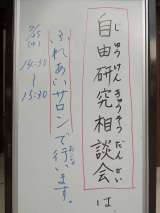 自由研究相談会は
じゆうけんきゅうそうだんかい
ふれあいサロンで行います。
おこな
14:30
〜
15:30